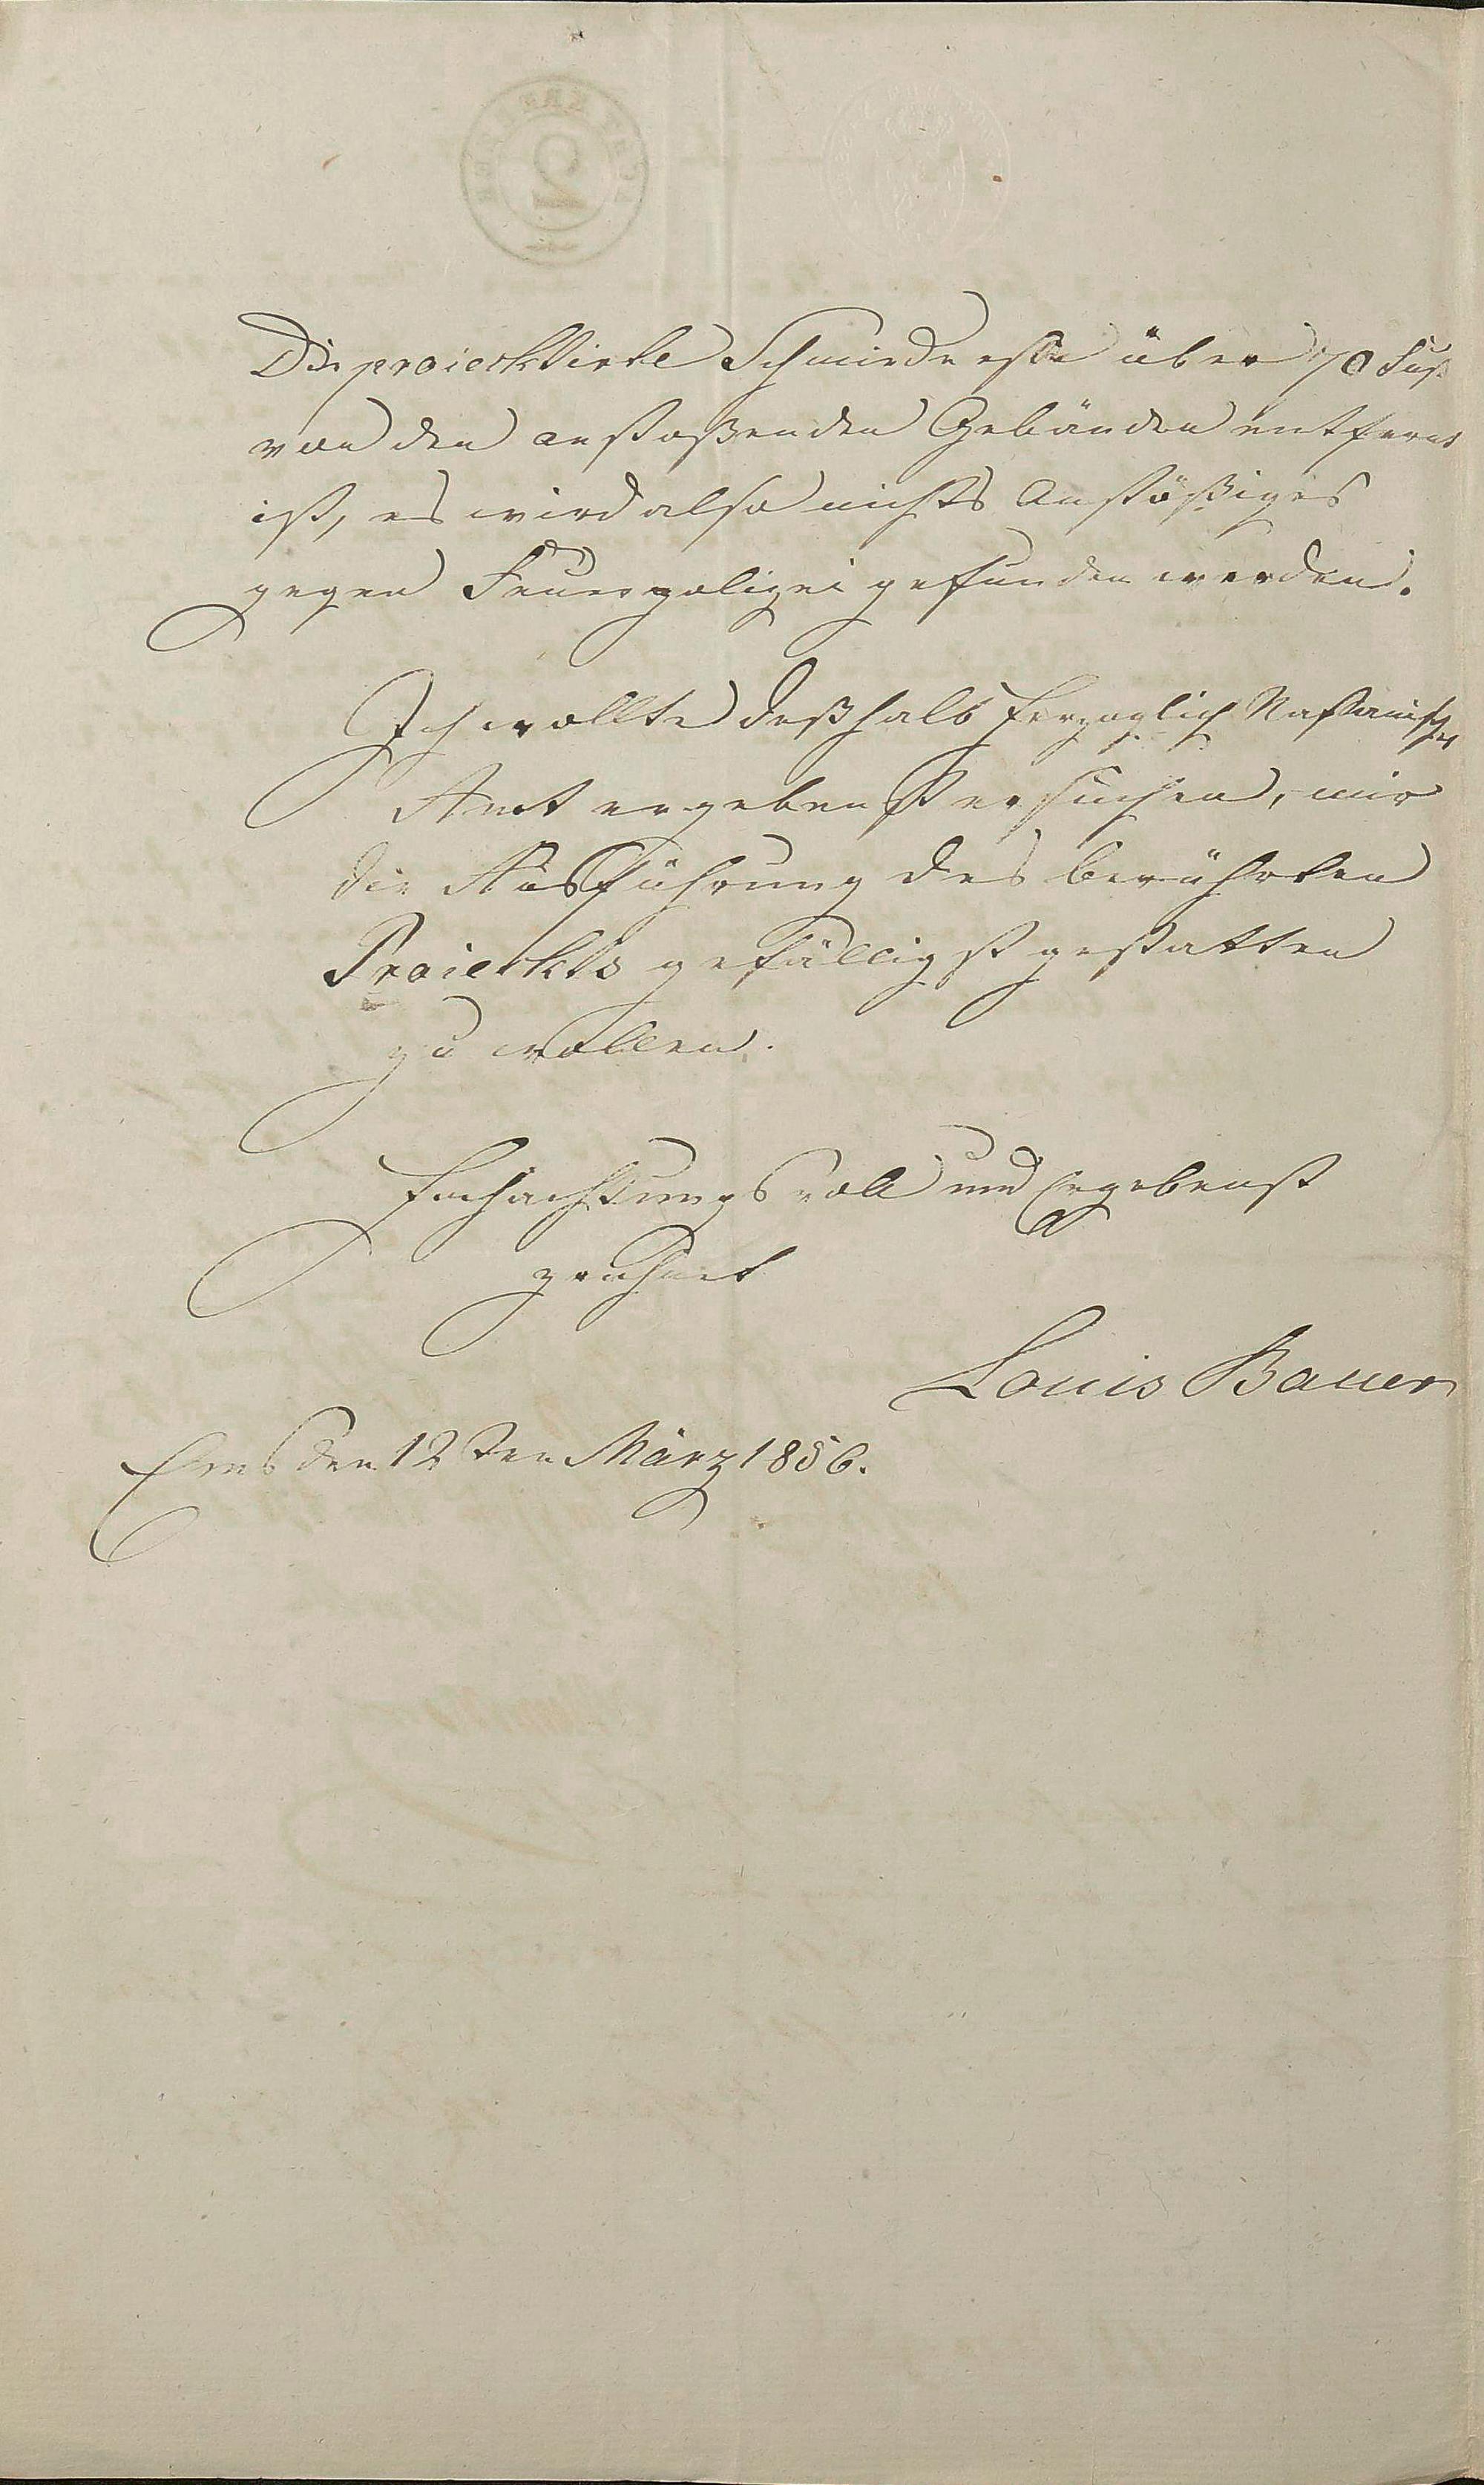 Die proiecktirte Schmiedeesse über 70 Fuß
von den anstoßenden Gebäuden entfernt
ist, es wird also nichts Anstößiges
gegen Feuerpolizei gefunden werden.
Ich wollte deßhalb Herzoglich Naßauisches
Amt ergebenst ersuchen, mir
die Ausführung des berührten
Proieckts gefälligst gestatten
zu wollen.
Hochachtungsvoll und Ergebenst
zeichnet
Louis Bauer
Ems den 12ten März 1856.